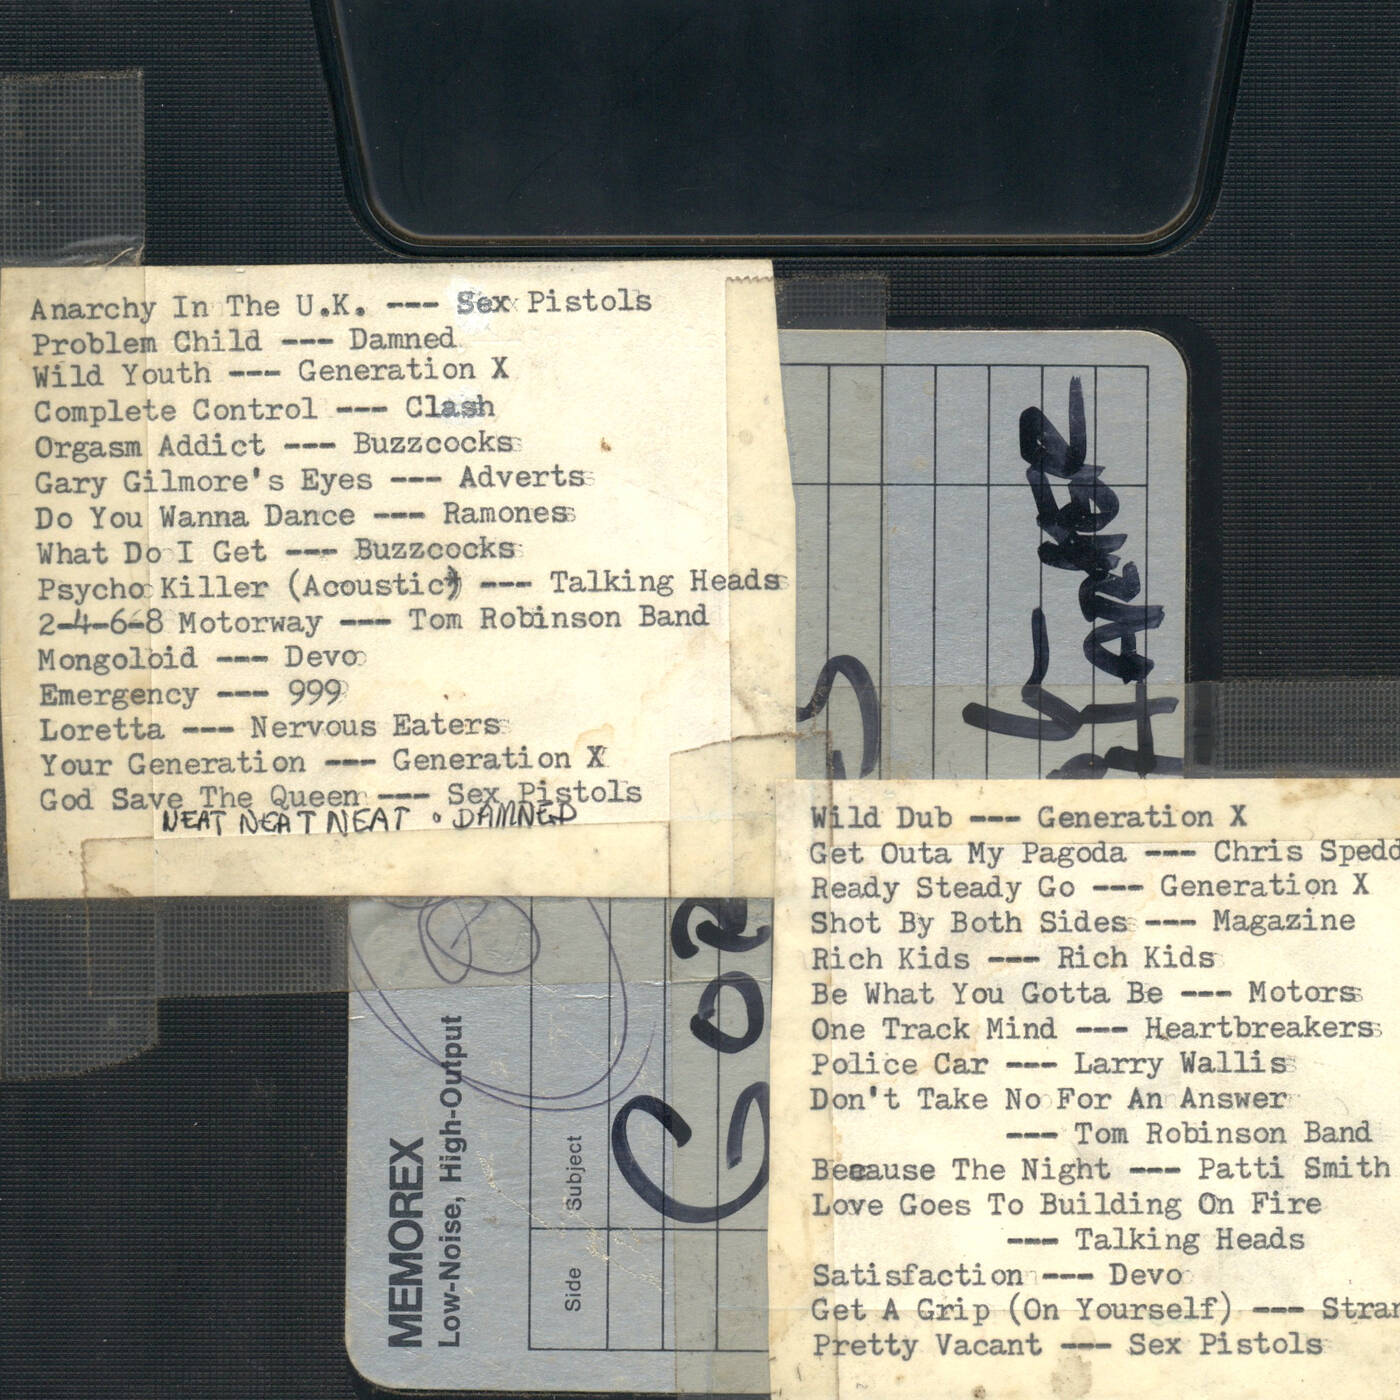 Anarchy In The U.K. --- Sex Pistols
Problem Child --- Damned
Wild Youth --- Generation X
Complete Control --- Clash
Orgasm Addict --- Buzzcocks
Gary Gilmore's Eyes --- Adverts
Do You Wanna Dance --- Ramones
What Do I Get --- Buzzcocks
Psycho Killer (Acoustic) --- Talking Heads
2-4-6-8 Motorway --- Tom Robinson Band
Mongoloid --- Devo
Emergency --- 999
Loretta --- Nervous Eaters
Your Generation --- Generation X
God Save The Queen --- Sex Pistols
NEAT NEAT NEAT · DAMNED
Wild Dub --- Generation X
Get Outa My Pagoda --- Chris Spedd
Ready Steady Go --- Generation X
Shot By Both Sides --- Magazine
Rich Kids --- Rich Kids
Be What You Gotta Be --- Motors
One Track Mind --- Heartbreakers
Police Car --- Larry Wallis
Don't Take No For An Answer
--- Tom Robinson Band
Because The Night --- Patti Smith
Love Goes To Building On Fire
--- Talking Heads
Satisfaction --- Devo
Get A Grip (On Yourself) --- Stran
Pretty Vacant --- Sex Pistols
MEMOREX
Low-Noise, High-Output
Side Subject